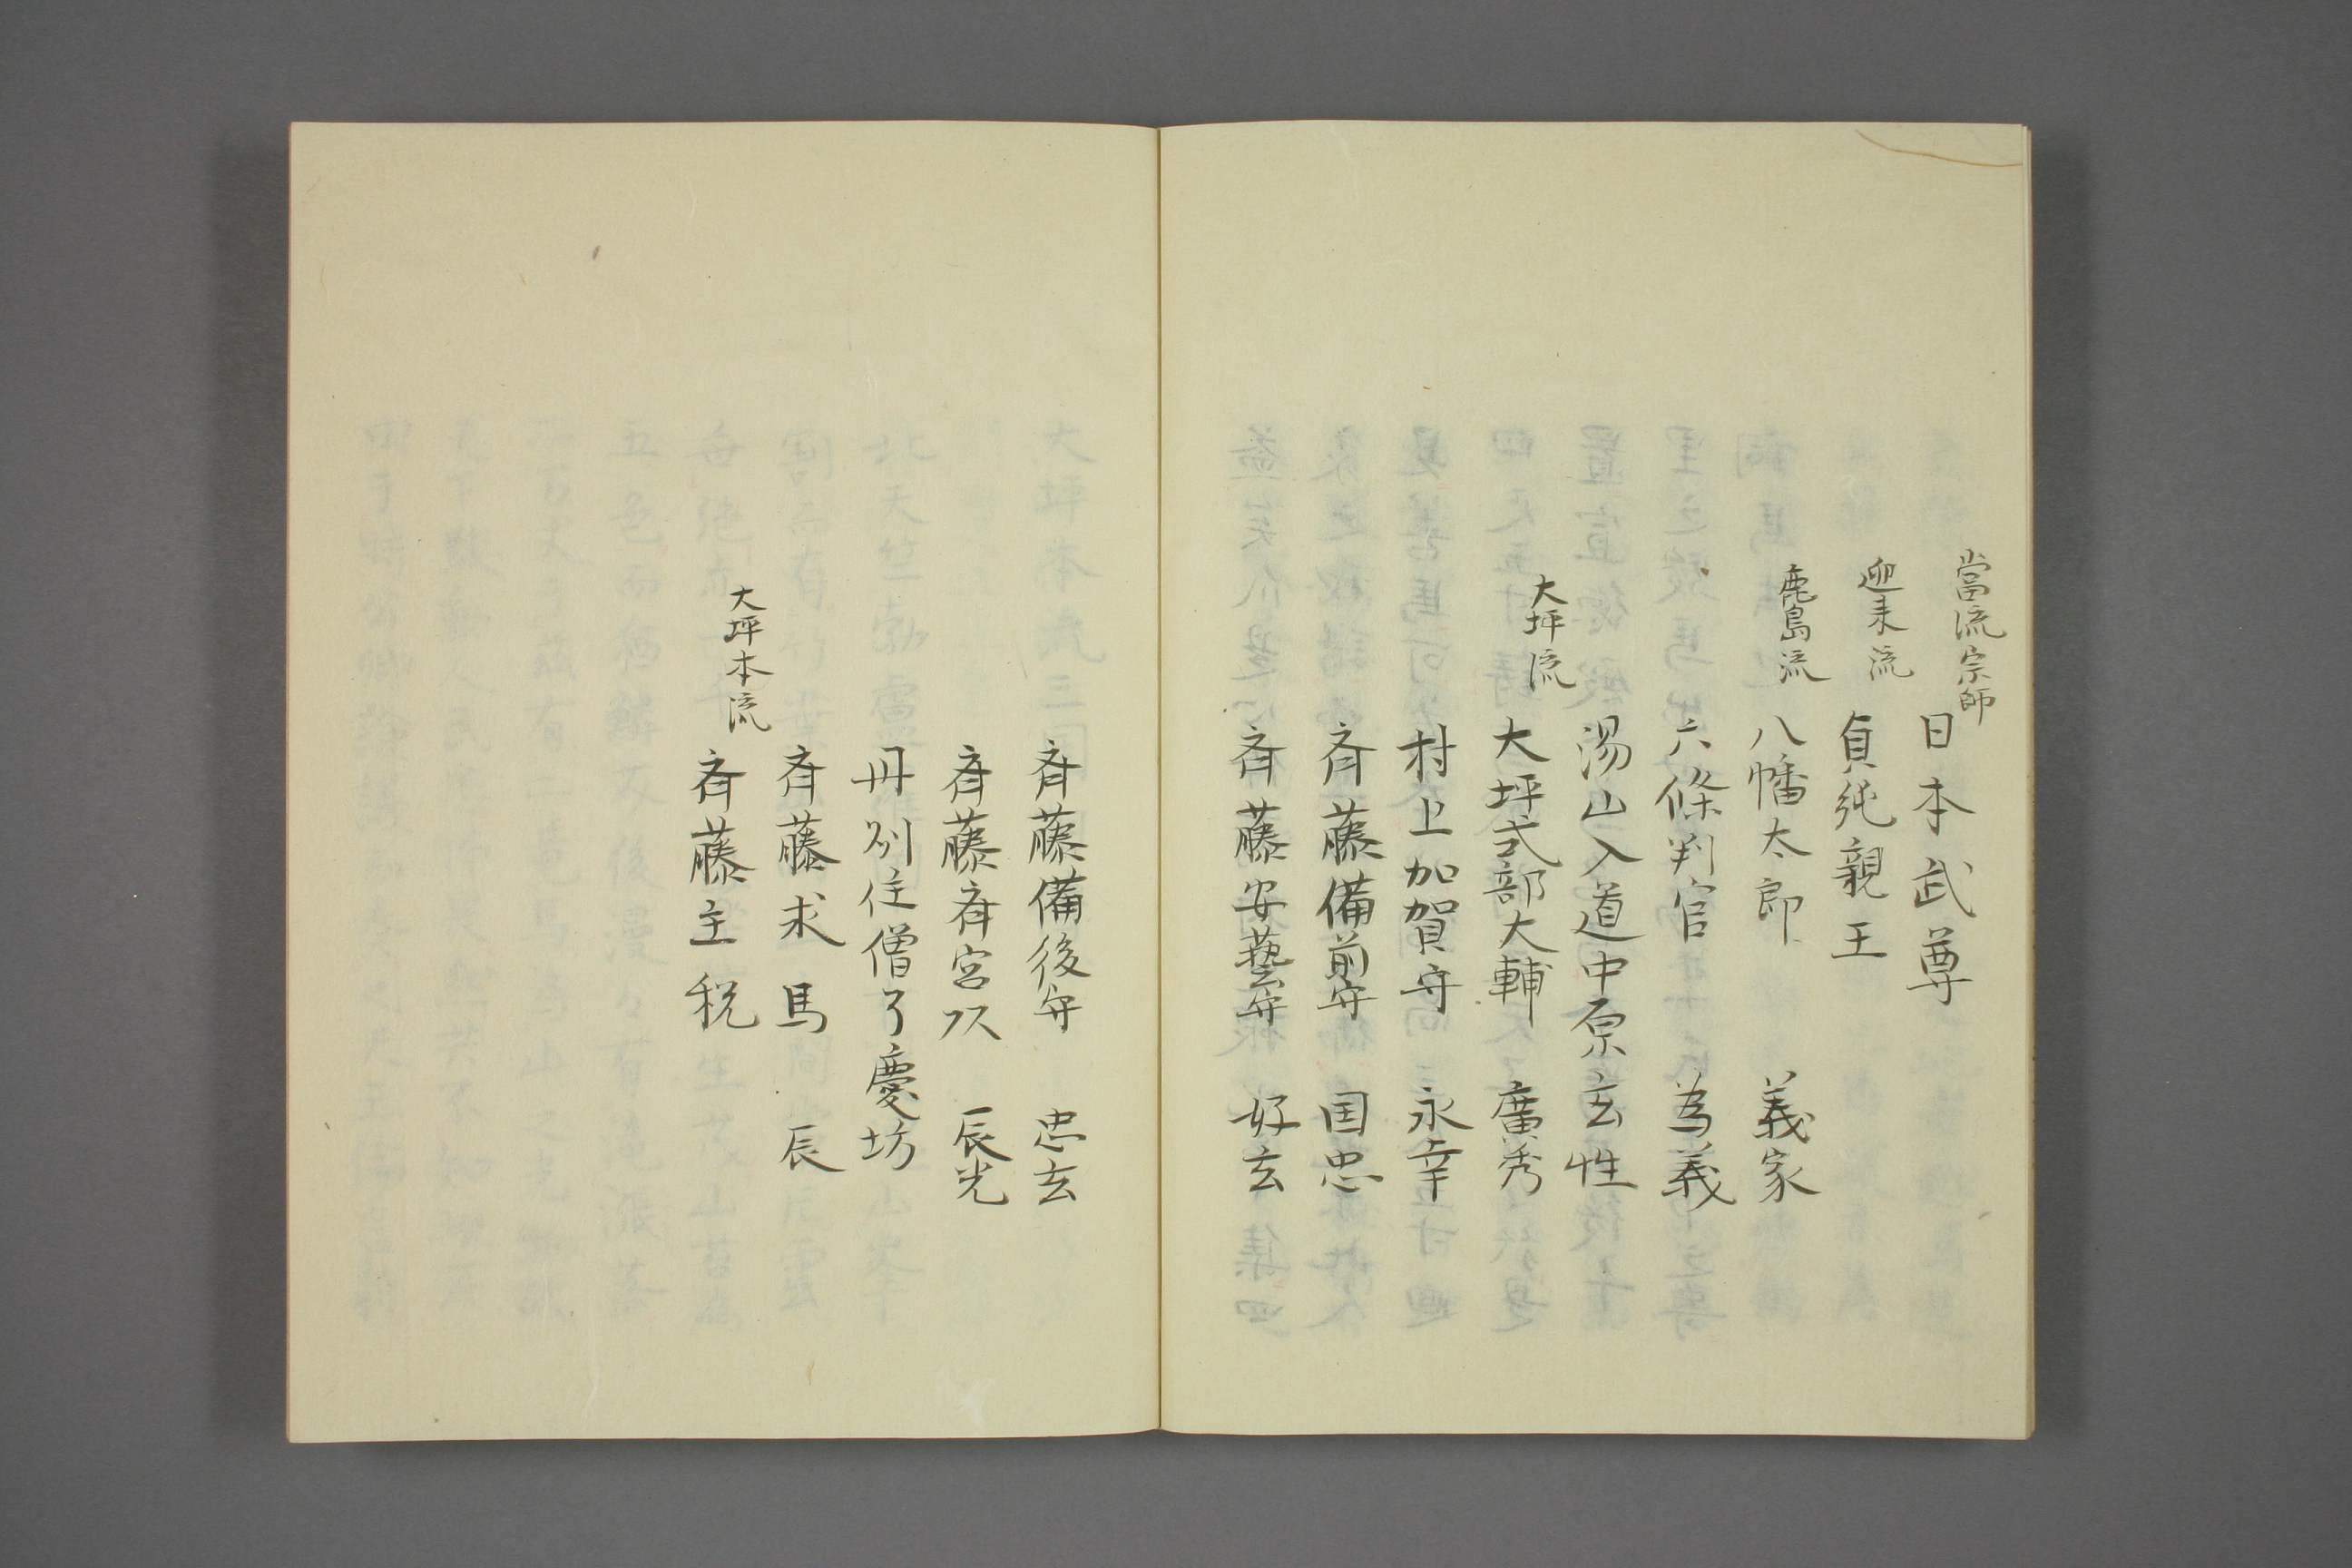 當流宗師
日本武尊
迎来流
貞純親王
鹿島流
八幡太郎 義家
六條判官 為義
湯山入道中原玄性
大坪流
大坪式部大輔 廣秀
村上加賀守 永幸
斉藤備前守 国忠
斉藤安藝守 好玄
斉藤備後守 忠玄
斉藤斉宮頭 辰光
丹州住僧了慶坊
斉藤求馬 辰
大坪本流
斉藤主税